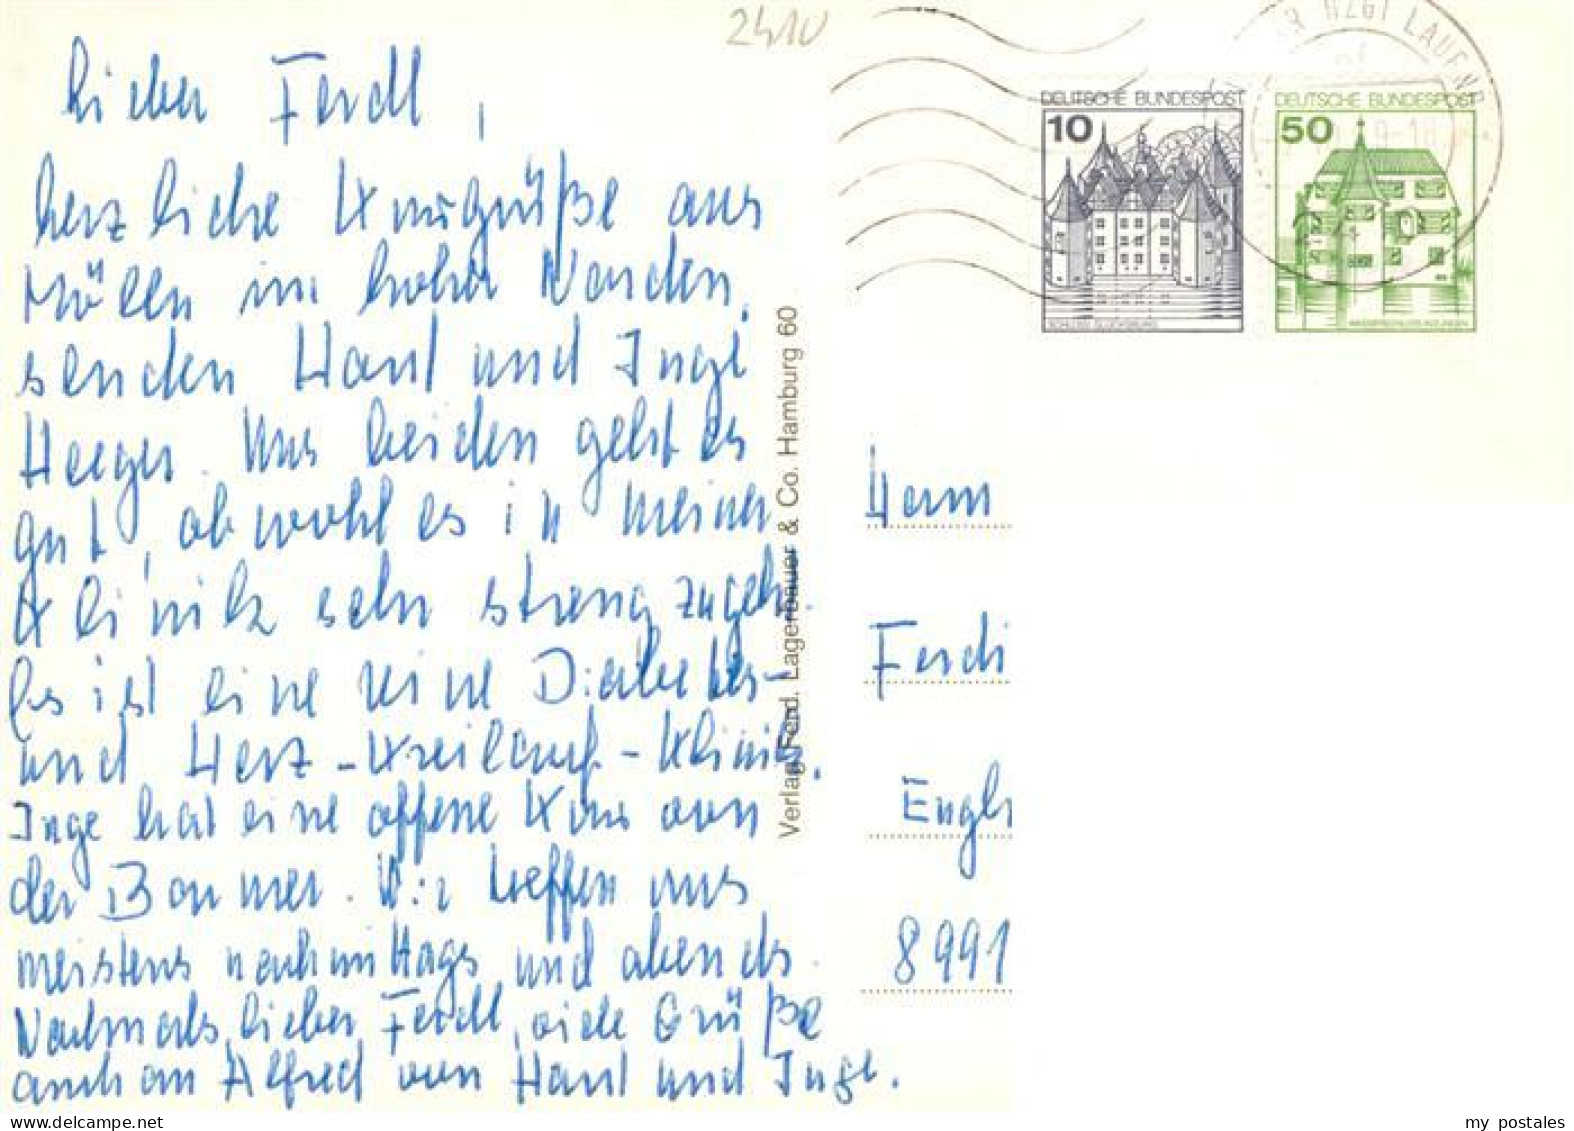 2410
Lieber Ferdl,
herzliche Kurgrüße aus
Mölln im hohen Norden,
senden Horst und Inge
Heeger. Uns beiden geht es
gut, obwohl es in meiner
Klinik sehr streng zugeht.
Es ist eine reine Diabetes-
und Herz-Kreislauf-Klinik.
Inge hat eine offene Kur von
der Barmer. Wir treffen uns
meistens nachmittags und abends.
Nochmals, lieber Ferdl, viele Grüße
auch an Alfred von Horst und Inge.
Verlag Ferd. Lagerbauer & Co. Hamburg 60
DEUTSCHE BUNDESPOST
10
SCHLOSS GLÜCKSBURG
DEUTSCHE BUNDESPOST
50
WASSERSCHLOSS INZLINGEN
9-18
Herrn
Ferdi
Engl
8991
my postales